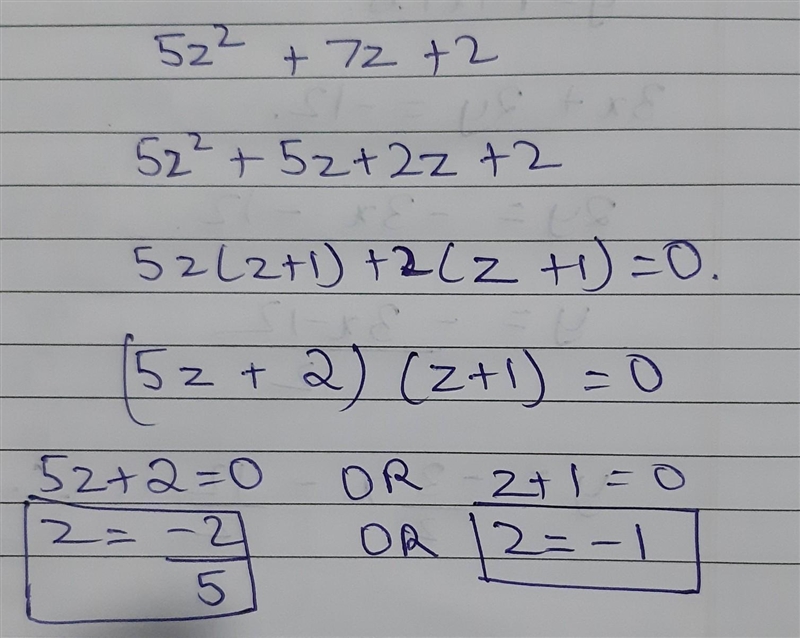 5z² + 7z + 2
5z² + 5z + 2z + 2
5z(z+1) + 2(z + 1) = 0.
(5z + 2) (z+1) = 0
5z + 2 = 0 OR z + 1 = 0
z = -2/5 OR z = -1